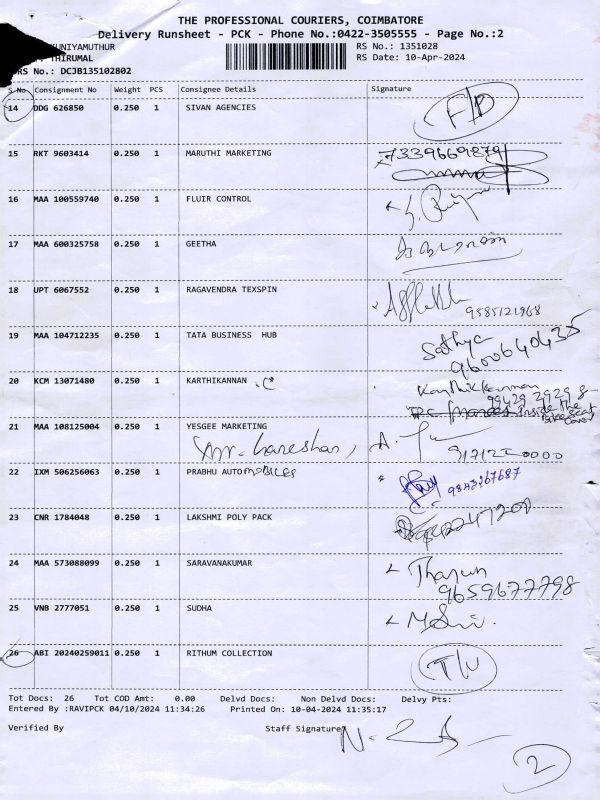 THE PROFESSIONAL COURIERS, COIMBATORE
Delivery Runsheet - PCK - Phone No.:0422-3505555 - Page No.:2
KUNIYAMUTHUR RS No.: 1351028
THIRUMAL RS Date: 10-Apr-2024
DRS No.: DCJB135102802
S No Consignment No Weight PCS Consignee Details Signature
14 DDG 626850 0.250 1 SIVAN AGENCIES F/D
15 RKT 9603414 0.250 1 MARUTHI MARKETING 7339669879
16 MAA 100559740 0.250 1 FLUIR CONTROL
17 MAA 600325758 0.250 1 GEETHA
18 UPT 6067552 0.250 1 RAGAVENDRA TEXSPIN
9585121968
19 MAA 104712235 0.250 1 TATA BUSINESS HUB Sathya
9600640435
20 KCM 13071480 0.250 1 KARTHIKANNAN .C Karthikkannan
99429 29298
Inside the Bike seat cover
21 MAA 108125004 0.250 1 YESGEE MARKETING
22 IXM 506256063 0.250 1 PRABHU AUTOMOBILES 9843967687
23 CNR 1784048 0.250 1 LAKSHMI POLY PACK
24 MAA 573088099 0.250 1 SARAVANAKUMAR Tharun
9659677798
25 VNB 2777051 0.250 1 SUDHA
26 ABI 20240259011 0.250 1 RITHUM COLLECTION
Tot Docs: 26 Tot COD Amt: 0.00 Delvd Docs: Non Delvd Docs: Delvy Pts:
Entered By :RAVIPCK 04/10/2024 11:34:26 Printed On: 10-04-2024 11:35:17
Verified By Staff Signature
2